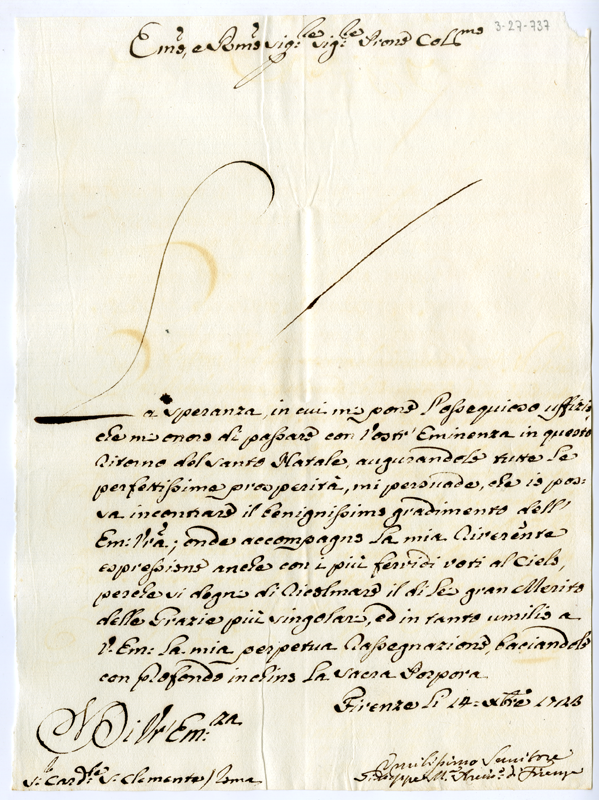 3-27-737
Em̃o, e Rm̃o Sig:re Sig:re Prone Col:mo
La Speranza, in cui mi pone l'ossequioso uffizio,
che mi onoro di passare con Vostr' Eminenza in questo
Ritorno del Santo Natale, augurandole tutte le
perfettissime prosperità, mi persuade, che io pos:
sa incontrare il benignissimo gradimento dell'
Em: Vr̃a; onde accompagno la mia Riverente
espressione anche con i più fervidi voti al Cielo,
perche si degni di Ricolmare il di Le gran Merito
delle Grazie più singolari, ed in tanto umilio a
V. Em: la mia perpetua Rassegnazione, baciandole
con profondo inchino la Sacra Porpora
Firenze li 14: Xbre 1723
Di Vr' Em:za
S:r Card:le S: Clemente / Roma
Umilissimo Servitore
Giuseppe M:a Arciv: di Firenze